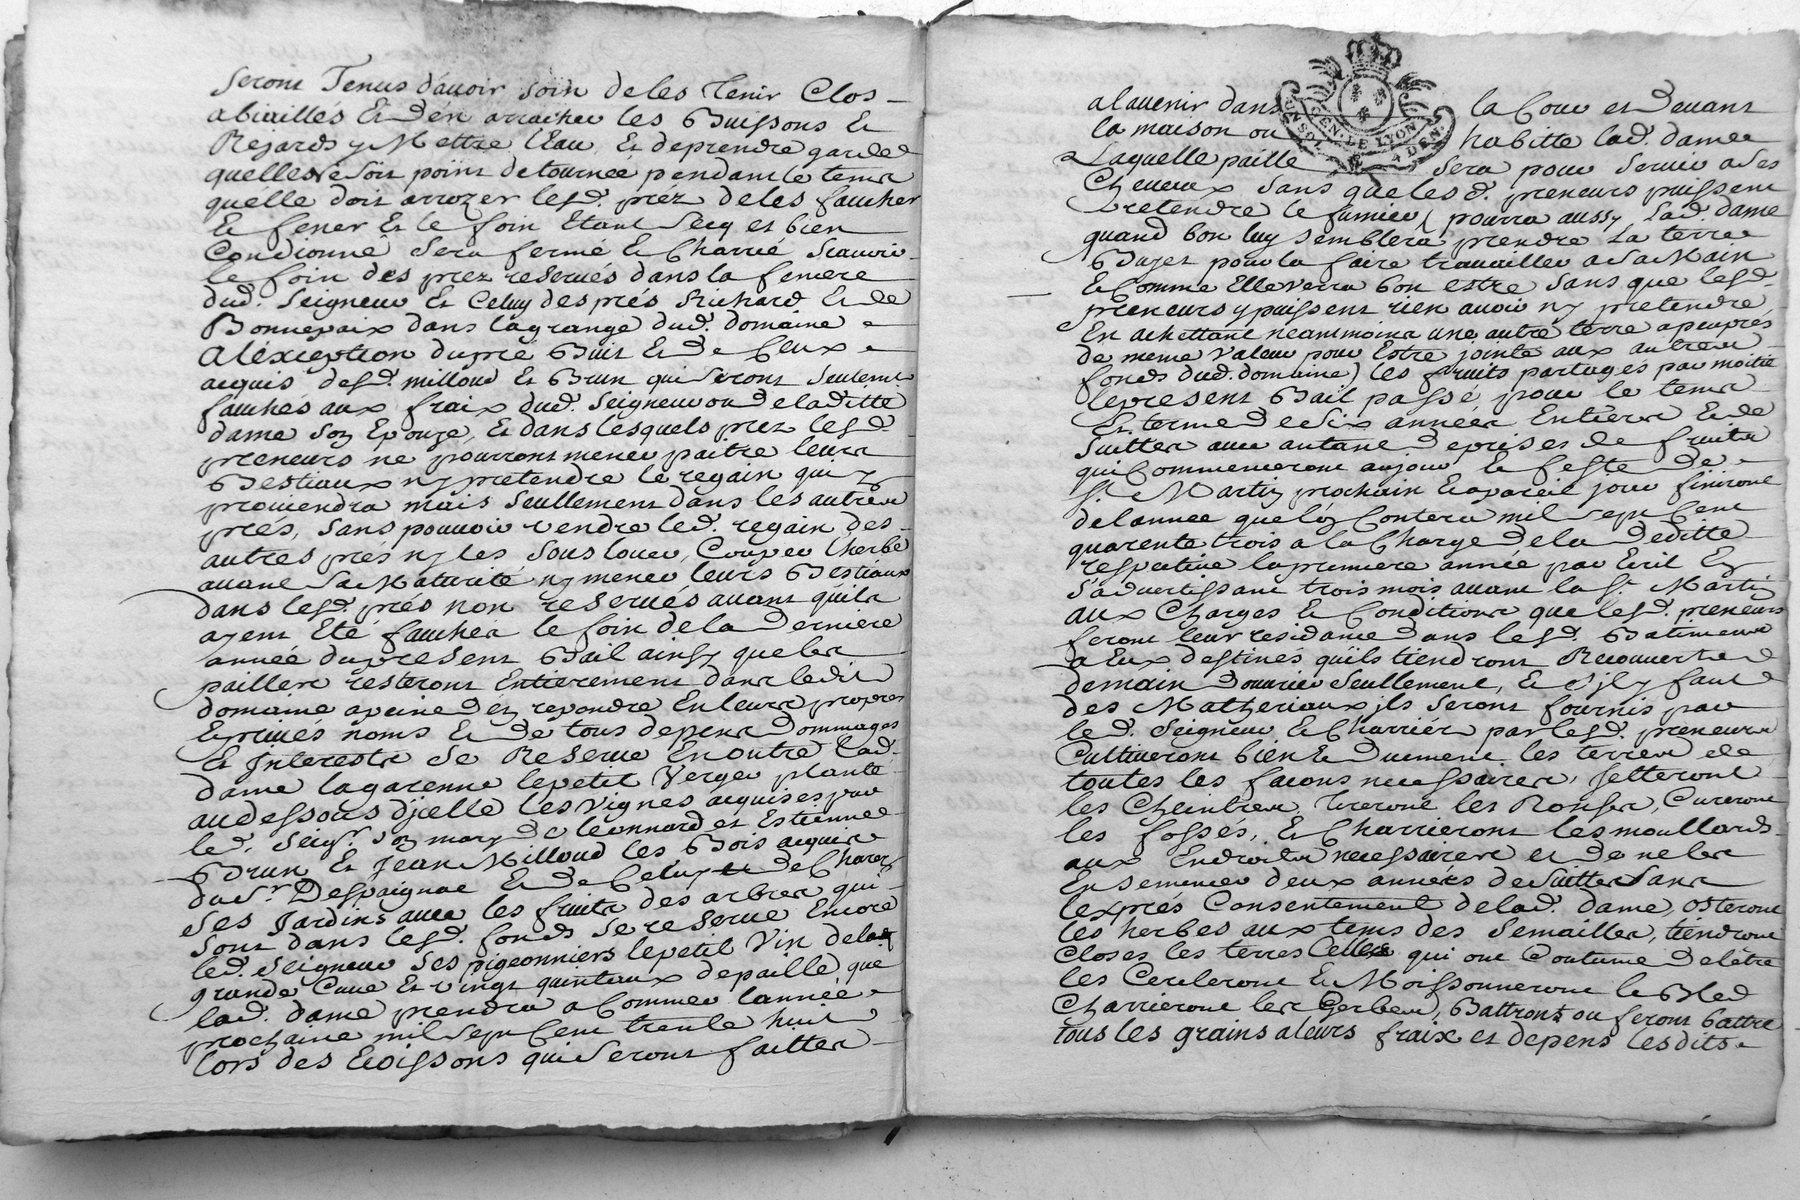 seront Tenus davoir soin de les Tenir Clos
abiaillés Et d'én arracher les Buissons Et
Rejards y Mettre l'Eau, Et deprendre garde
quelle ne soit point detournee pendant le tems
quelle doit arrozer lesd. préz deles faucher
Et fener Et le foin Etant Secq et bien
Condionné Sera fermé Et Charrié Scavoir
le foin des prez reservés dans la feniere
dud. Seigneur Et Celuy des prés Richard Et de
Bonnepaix dans la grange dud. domaine
a léxception du pré Buit Et de Ceux
acquis desd. milloud Et Brun qui Seront Seulemt
fauchés aux fraix dud. Seigneur ou de laditte
dame Son Epouze, Et dans lesquels prez lesd.
preneurs ne pourront mener paitre leurs
Bestiaux ny pretendre le regain qui y
proviendra mais Seullement dans les autres
prés, Sans pouvoir vendre led. regain des
autres prés ny les Sous louer, Couper lherbe
avant Sa Maturité ny mener leurs Bestiaux
dans lesd. prés non reservés avant quils
ayent Eté fauchés le foin de la derniere
année du present Bail ainsy que les
pailles resteront Entierement dans ledit
domaine apeine dén repondre En leurs propres
Et privés noms Et de tous depens dommages
Et Interests Se Reserve En outre lad.
dame la garenne le petit Verger planté
au dessous djcelle les vignes acquises par
led. Seigr. Son mary de leonnard et Estienne
Brun Et Jean Milloud les Bois acquis
du Sr. Despaignac Et de Celuy de Charez
Ses Jardins avec les fruits des arbres qui
Sont dans lesd. fonds Se reserve Encore
led. Seigneur Ses pigeonniers le petit Vin de la
grande Cuve Et vingt quintaux depaille que
lad. dame prendra a Commencer lannée
prochaine mil Sept Cent trente huit
lors des moissons qui Seront faittes
alavenir dans la Cour et devant
la maison ou habitte lad. dame
Laquelle paille Sera pour Servir a Ses
Chevaux Sans que lesd. preneurs puissent
pretendre le fumier (pourra aussy lad. dame
quand bon luy Semblera prendre La terre
Buyet pour la faire travailler a Sa Main
Et Comme Elle verra bon estre Sans que lesd.
preneurs y puissent rien avoir ny pretendre
En achettant neantmoins une autre terre apeuprés
de meme valeur pour Estre jointe aux autres
fonds dud. domaine) les fruits partagés par moitié
le present Bail passé pour le tems
Et terme de Six années Entieres Et de
Suitte avec autant deprises de fruits
qui Commenceront au jour Et feste de
St. Martin prochain Et apareil jour finiront
del annee que lón Contera mil Sept Cent
quarente trois a la Charge de la deditte
respective la premiere année par Ecrit En
S'advertissant trois mois avant la St. Martin
aux Charges Et Conditions que lesd. preneurs
feront leur residance dans lesd. Batimens
a Eux destinés quils tiendront Recouverts
demain douvrier Seullement, Et S'jl y faut
des Matheriaux jls Seront fournis par
led. Seigneur Et Charriés par lesd. preneurs
Cultiveront bien Et Duement les terres de
toutes les facons necessaires, Jetteront
les Cheintres, tireront les Ronses, Cureront
les fossés, Et Charrieront les moullards
aux Endroits necessaires et de ne les
Ensemencer deux années de Suitte Sans
lexprés Consentement delad. dame, osteront
les herbes aux tems des Semailles, tiendront
Closes les terres Celles qui ont Coutume de letre
les Cercleront Et Moissonneront le Bled
Charrieront les Gerbes, Battront ou feront battre
tous les grains a leurs fraix et depens lesdits
GEN. DE LYON